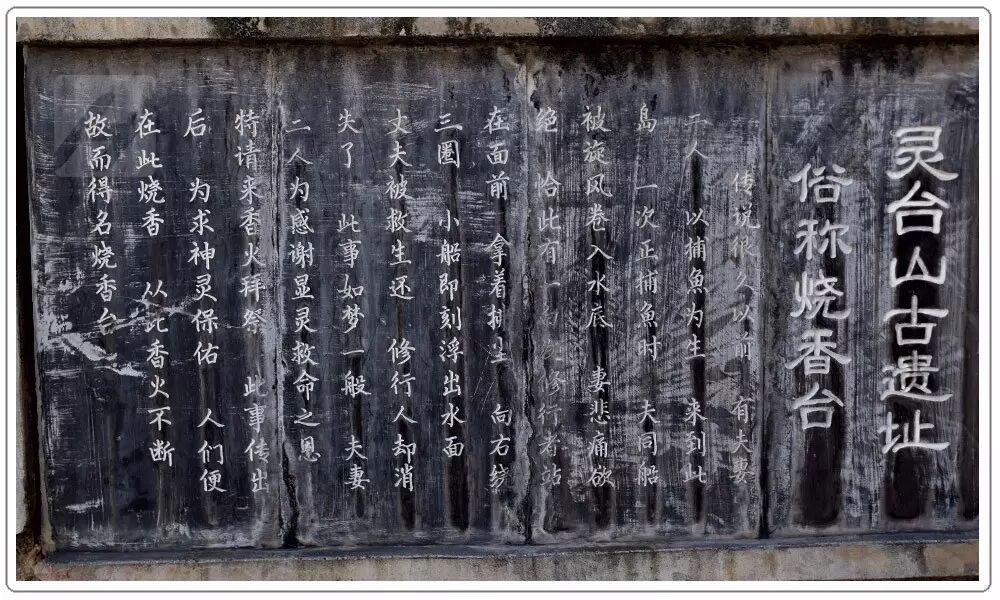 灵台山古遗址
俗称烧香台
传说很久以前 有夫妻
二人 以捕魚为生 来到此
岛 一次正捕魚时 夫同船
被旋风卷入水底 妻悲痛欲
绝 恰此有一 修行者站
在面前 拿着排尘 向右绕
三圈 小船即刻浮出水面
丈夫被救生还 修行人却消
失了 此事如梦一般 夫妻
二人为感谢显灵救命之恩
特请来香火拜祭 此事传出
后 为求神灵保佑 人们便
在此烧香 从此香火不断
故而得名烧香台